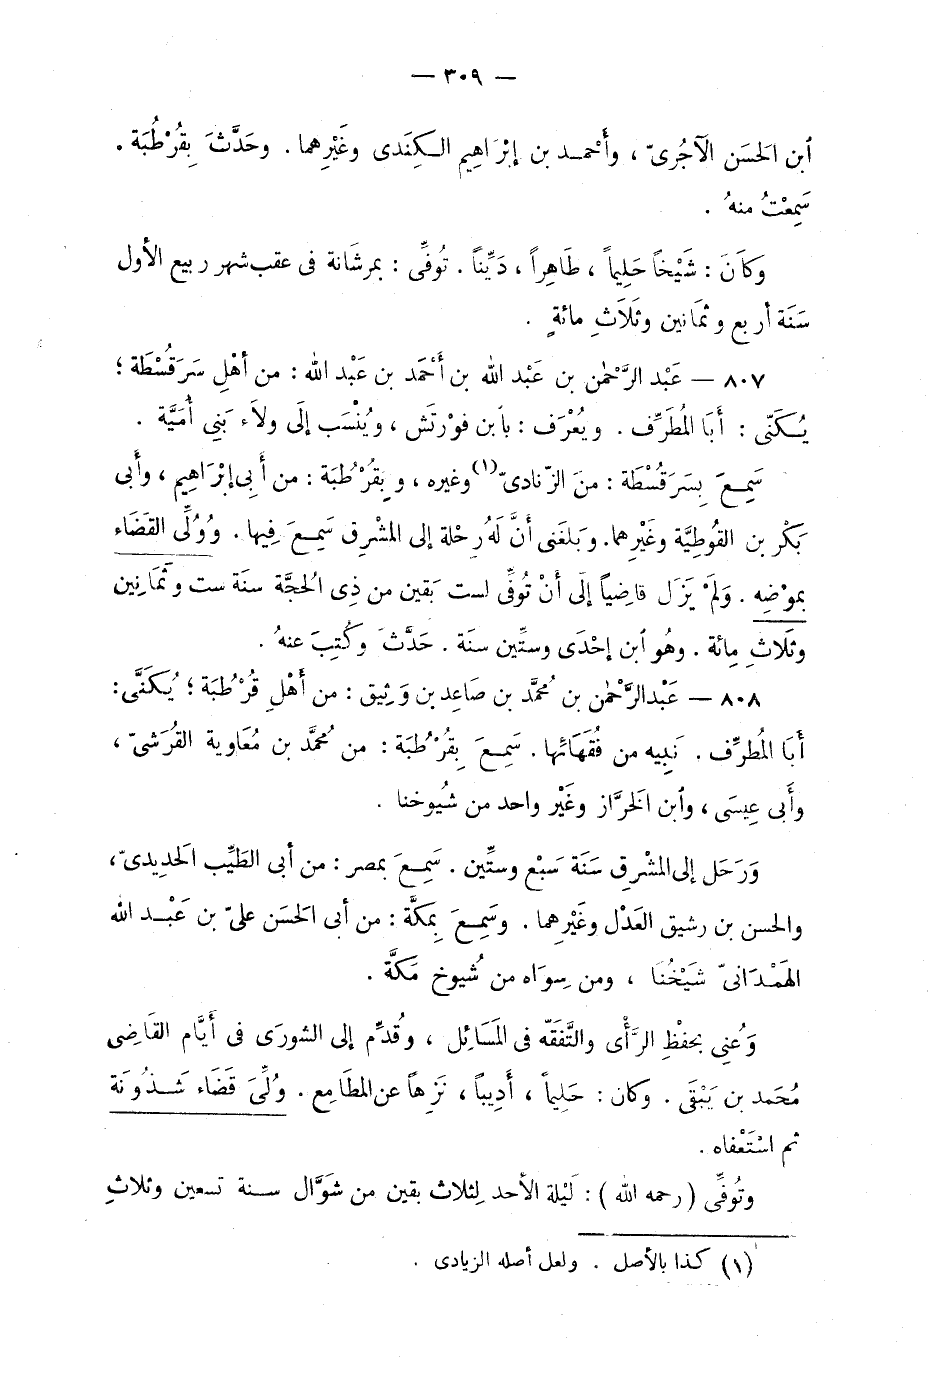 — ٣٠٩ —
ٱبن الحَسَن الآجُرىّ ، وأَحمـد بن إبْرَاهِيم الـكِنَدى وغَيْرِهما . وحَدَّثَ بِقُرْطُبَة .
سَمِعْتُ منهُ .
وكَانَ : شَيْخاً حَلِيماً ، طَاهِراً ، دَيِّناً . تُوفِّى : بمرشَانة فى عقب شهر ربيع الأول
سَنَة أربع وثمَانين وثَلَاثِ مائةٍ .
٨٠٧ — عَبْد الرَّحْمٰن بن عَبْد الله بن أَحْمَد بن عَبْد الله : من أهْلِ سَرَقُسْطَة ؛
يُـكَنّى : أَبَا المُطَرِّف . ويُعْرَف : بٱبن فورْتَش ، ويُنْسَب إلَى ولاَء بَنِى أُمَيَّة .
سَمِـعَ بِسَرَقُسْطَة : منَ الزّنادىّ (١) وغيره ، وبِقُرْطُبَة : من أَبِى إبْرَاهِيم ، وأَبى
بَكْر بن القُوطِيَّة وغَيْرِهما. وبَلغَنى أنَّ لَهُ رِحْلة إلى المَشْرِق سَمِعَ فِيها . وَوُلِّى القَضَاء
بموْضِعِه . وَلَمْ يَزَل قاضِياً إلَى أنْ تُوفِّى لست بَقين من ذِى الحجَّة سنَة ست وثَمَانِين
وثَلَاثِ مِائة . وهُو ٱبن إحْدَى وستِّين سنَة . حَدَّثَ وكُتِبَ عنهُ .
٨٠٨ — عَبْدالرَّحْمٰن بن مُحمَّد بن صَاعِد بن وَثِيق : من أَهْلِ قُرْطُبَة ؛ يُكَنَّى :
أَبَا المُطرِّف . نَبِيه من فُقَهَائها . سَمِعَ بِقُرْطُبَة : من مُحمَّد بن مُعَاوية القُرَشىّ ،
وأَبى عِيسَى ، وٱبن الخرَّاز وغَيْر واحد من شُيوخنا .
وَرَحَل إلى المَشْرِق سَنَة سَبْع وستِّين . سَمِعَ بمصر : من أبى الطَّيِّب الحَدِيدىّ ،
والحسن بن رشيق العَدْل وغَيْرِهما . وسَمِعَ بِمَكَّة : من أبى الحَسَن علىّ بن عَبْـد الله
الهَمْـدَانىّ شَيْخُنَا ، ومن سِوَاه من شُيوخ مَكَّة .
وَعُنِى بحفْظِ الرَّأْى والتَّفَقّه فى المَسَائِل ، وقُدِّم إلى الشورَى فى أَيَّام القَاضِى
مُحَمد بن يَبْقَى . وكان : حَلِيماً ، أَدِيباً ، نَزِهاً عن المَطَامِع . وُلِّىَ قَضَاء شَـذُونَة
ثم اسْتَعْفاه .
وتُوفِّى ( رحمه الله ) : لَيْلة الأحد لِثلاث بقين من شوَّال سـنة تسعين وثلاثِ
(١) كذا بالأصل . ولعل أصله الزيادى .